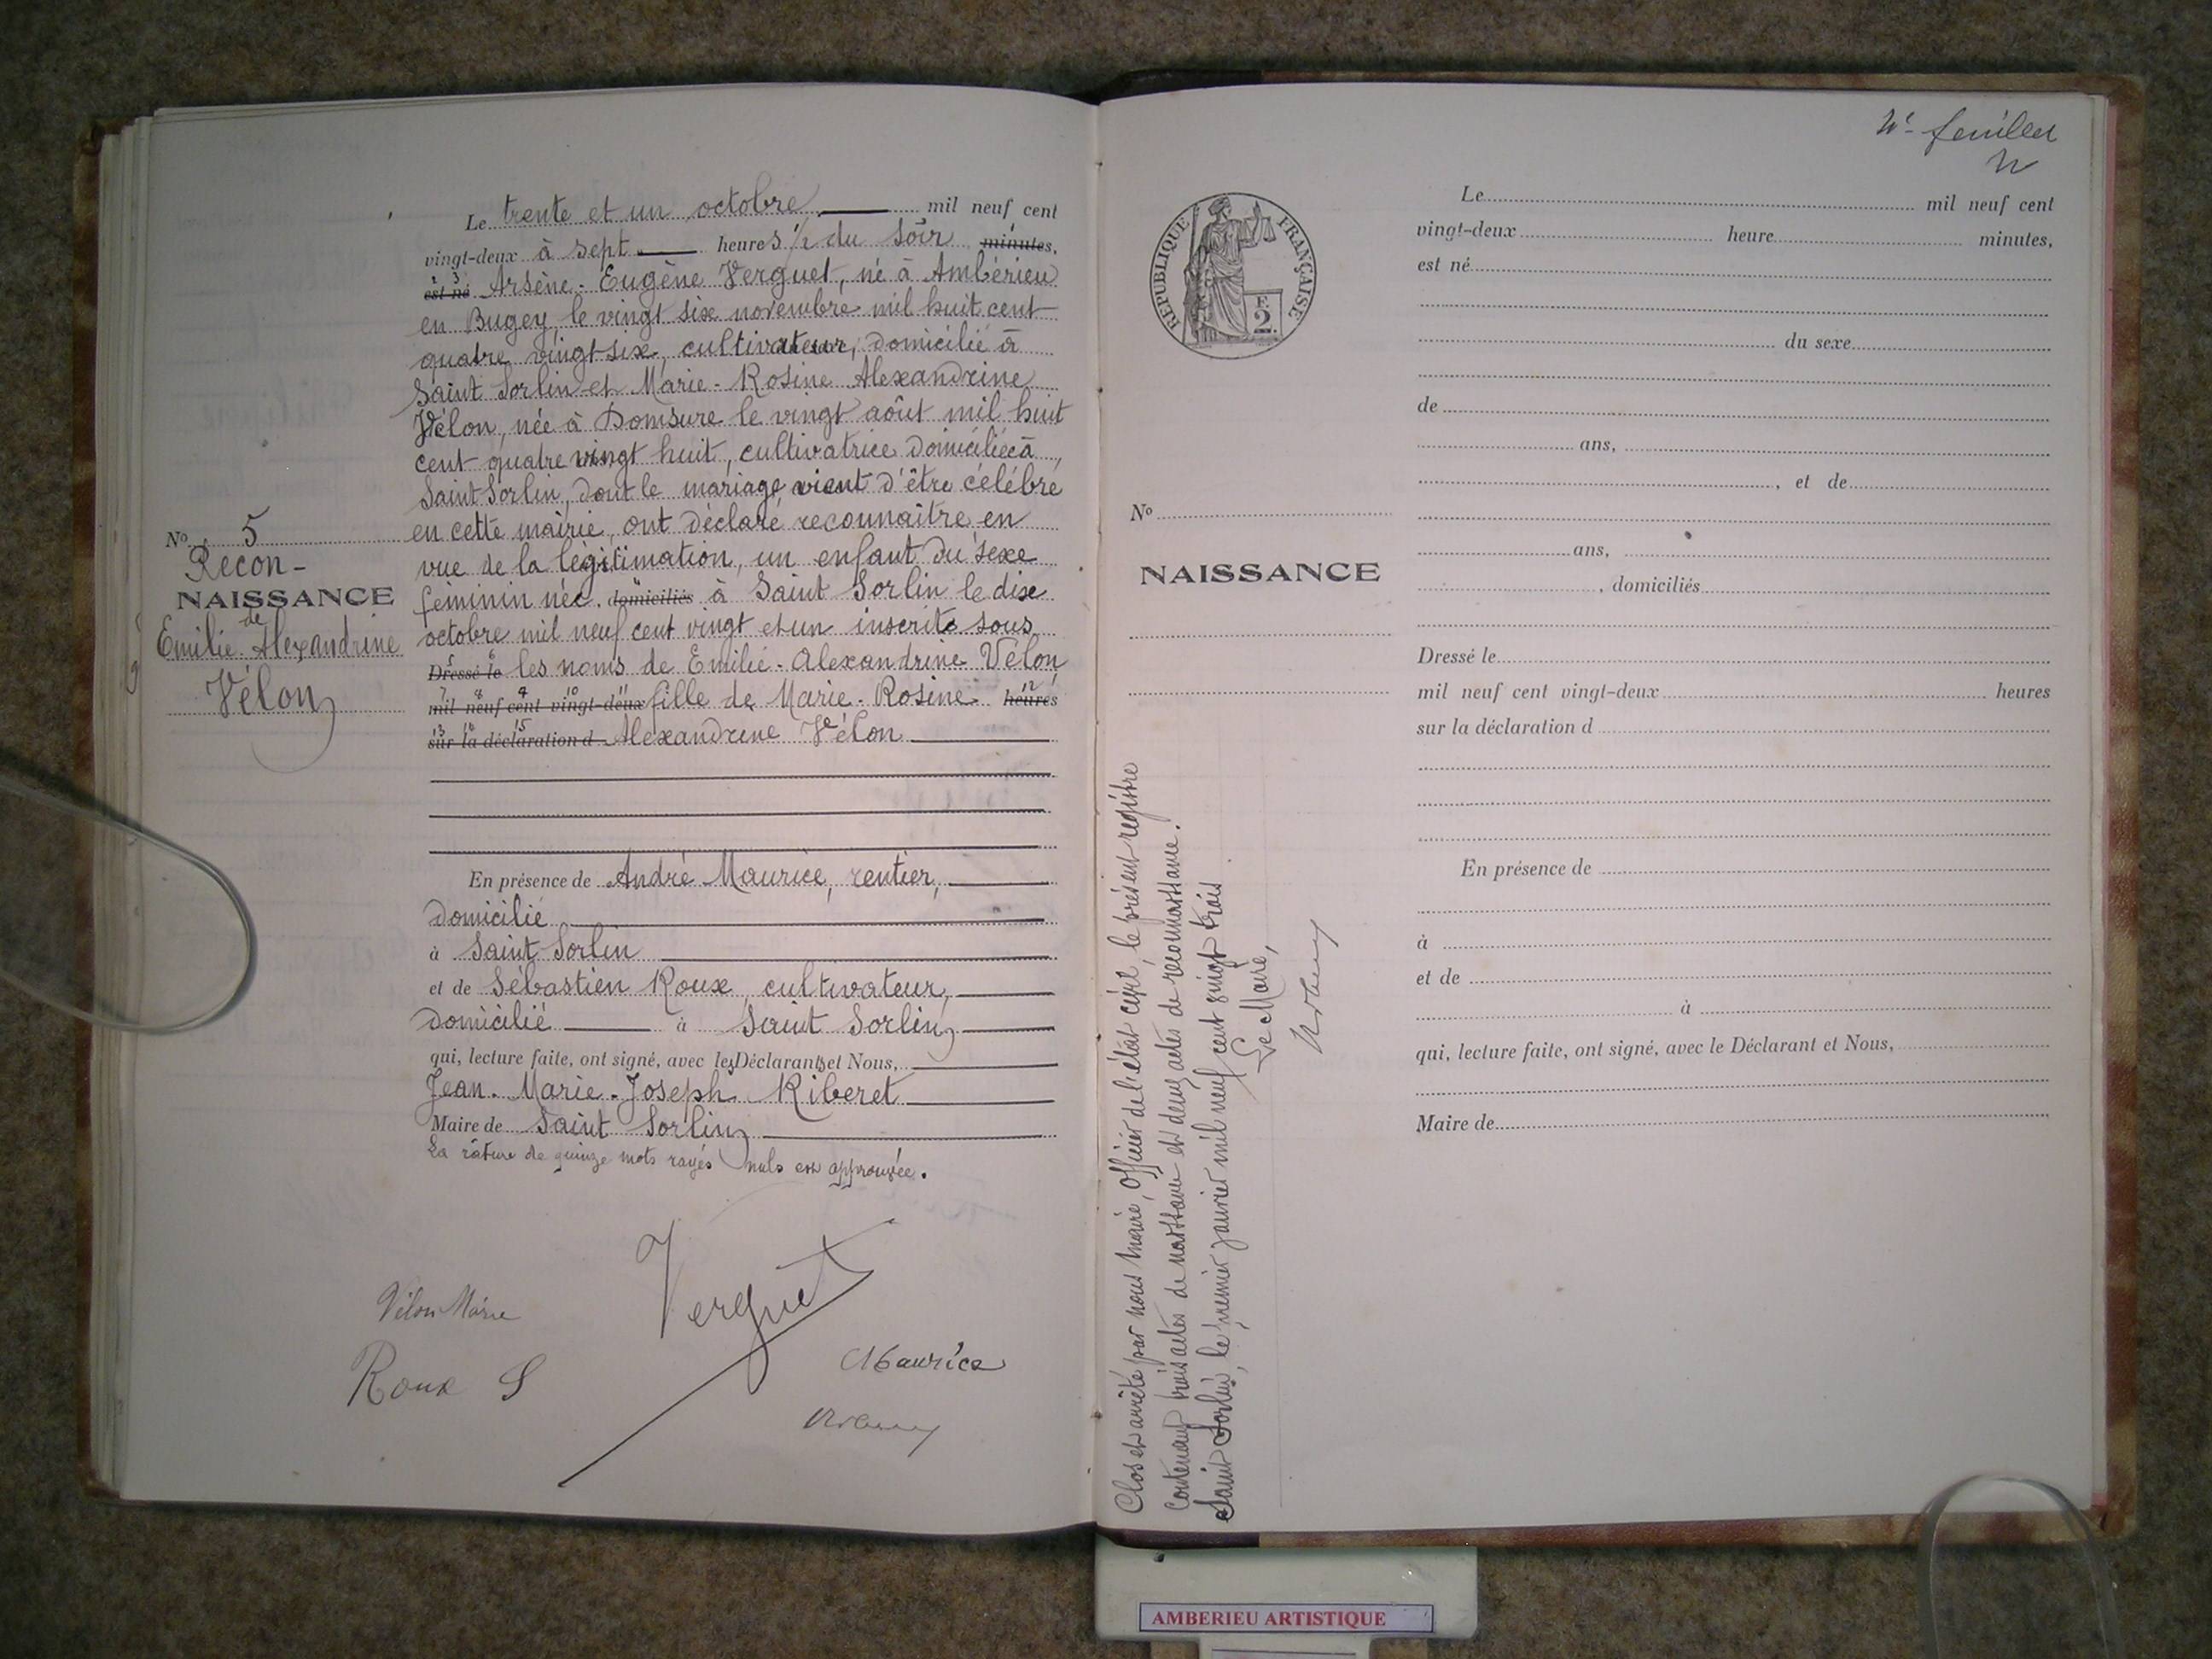 Le trente et un octobre mil neuf cent
vingt-deux à sept heures ½ du soir minutes,
est né Arsène-Eugène Verguet, né à Ambérieu
en Bugey, le vingt six novembre mil huit cent
quatre vingt-six, cultivateur, domicilié à
Saint Sorlin et Marie-Rosine Alexandrine
Vélon, née à Domsure le vingt août mil huit
cent quatre vingt huit, cultivatrice domiciliée à
Saint Sorlin, dont le mariage vient d'être célébré
en cette mairie, ont déclaré reconnaitre en
vue de la légitimation, un enfant du sexe
feminin née domiciliés à Saint Sorlin le dix
octobre mil neuf cent vingt et un inscrite sous
Dressé le les noms de Emilie-Alexandrine Vélon
mil neuf cent vingt-deux fille de Marie-Rosine heures
sur la déclaration d Alexandrine Vélon
En présence de André Maurice, rentier,
domicilié
à Saint Sorlin
et de Sébastien Roux, cultivateur,
domicilié à Saint Sorlin
qui, lecture faite, ont signé, avec les Déclarants et Nous,
Jean-Marie-Joseph Riberet
Maire de Saint Sorlin
La rature de quinze mots rayés nuls est approuvée.
Vélon Marie
Verguet
Roux S
Maurice
No 5
Recon-
NAISSANCE
de
Emilie-Alexandrine
Vélon
feuillet
RÉPUBLIQUE FRANÇAISE
F.
2
No
NAISSANCE
Clos et arrêté par nous Maire, Officier de l'état civil, le présent registre
Contenant trois actes de naissance et deux actes de reconnaissance.
Saint Sorlin, le premier janvier mil neuf cent vingt trois
Le Maire,
Le mil neuf cent
vingt-deux heure minutes,
est né
du sexe
de
ans,
, et de
ans,
, domiciliés
Dressé le
mil neuf cent vingt-deux heures
sur la déclaration d
En présence de
à
et de
à
qui, lecture faite, ont signé, avec le Déclarant et Nous,
Maire de
AMBERIEU ARTISTIQUE